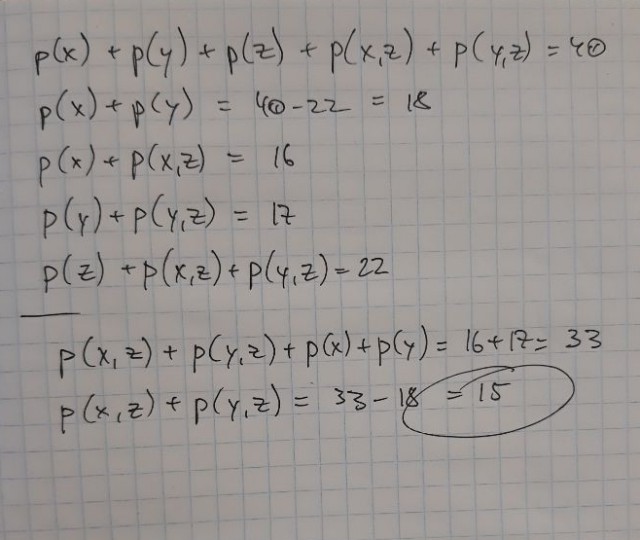 p(x) + p(y) + p(z) + p(x,z) + p(y,z) = 40
p(x) + p(y) = 40 - 22 = 18
p(x) + p(x,z) = 16
p(y) + p(y,z) = 17
p(z) + p(x,z) + p(y,z) = 22
p(x,z) + p(y,z) + p(x) + p(y) = 16 + 17 = 33
p(x,z) + p(y,z) = 33 - 18 = 15